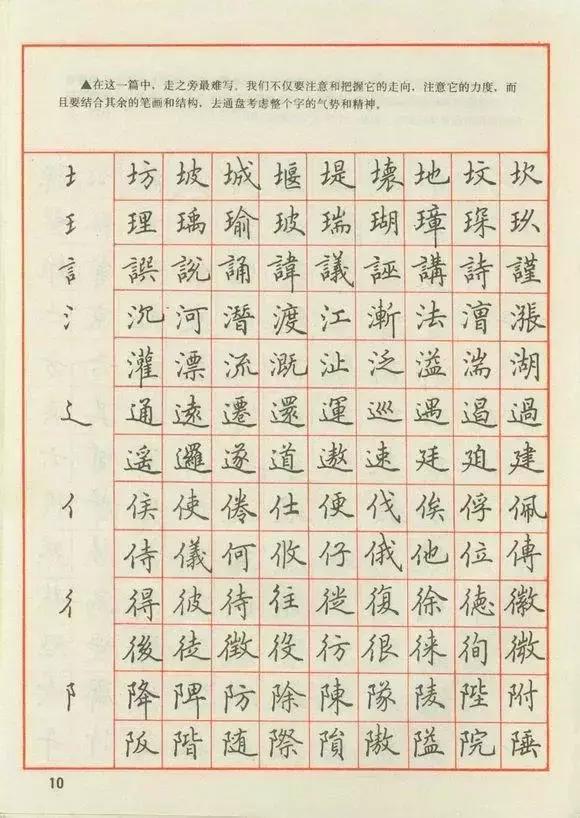 ▲在这一篇中，走之旁最难写。我们不仅要注意和把握它的走向，注意它的力度，而
且要结合其余的笔画和结构，去通盘考虑整个字的气势和精神。
土 坊 坡 城 堰 堤 壊 地 坟 坎
王 理 瑀 瑜 玻 瑞 瑚 璋 琛 玖
言 譔 說 誦 諱 議 誣 講 詩 謹
氵 沉 河 潛 渡 江 漸 法 漕 漲
灌 漂 流 溉 沚 泛 溢 湍 湖
辶 通 遠 遷 還 運 巡 遇 遏 過
遥 邏 遂 道 遨 速 廷 廸 建
亻 侯 使 倦 仕 便 伐 俟 俘 佩
侍 儀 何 攸 仔 俄 他 位 傳
彳 得 彼 待 往 徙 復 徐 德 徽
後 徒 徵 役 彷 很 徠 徇 微
阝 降 陴 防 除 陳 隊 陵 陛 附
阪 階 随 際 隕 隞 隘 院 陲
10